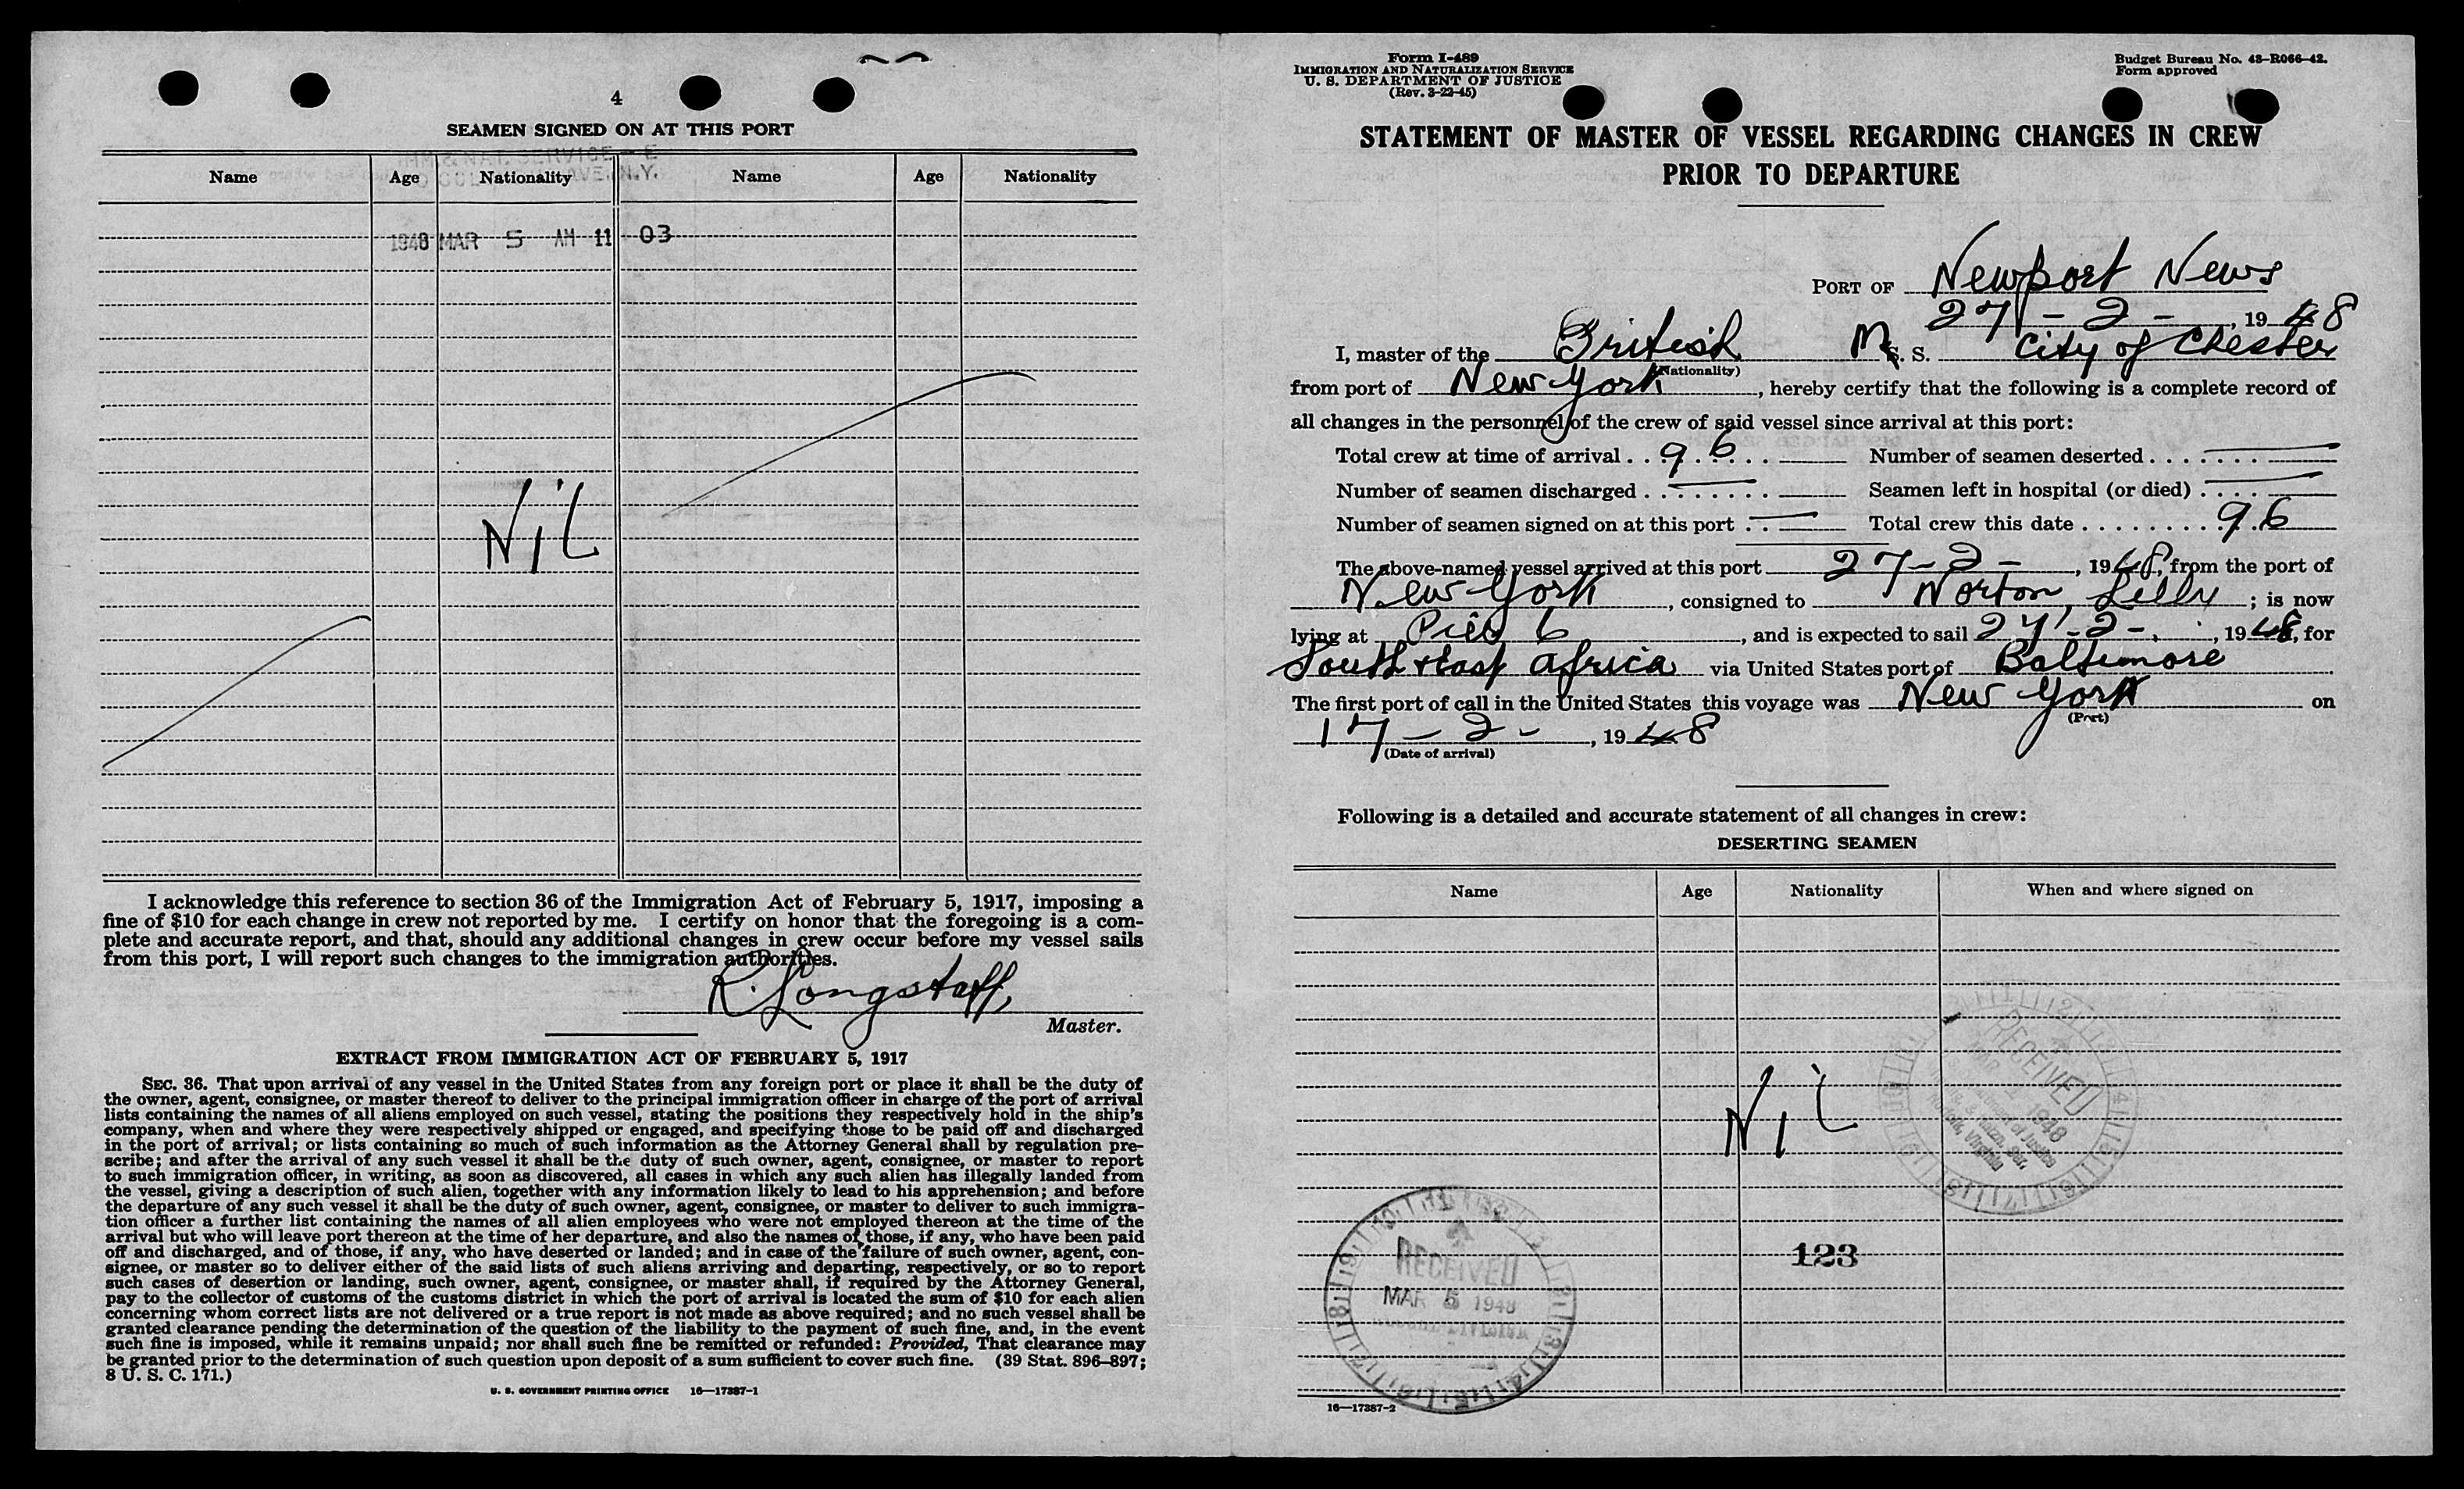 4
SEAMEN SIGNED ON AT THIS PORT
Name Age Nationality Name Age Nationality
1948 MAR 5 AM 11 03
Nil
I acknowledge this reference to section 36 of the Immigration Act of February 5, 1917, imposing a
fine of $10 for each change in crew not reported by me. I certify on honor that the foregoing is a com-
plete and accurate report, and that, should any additional changes in crew occur before my vessel sails
from this port, I will report such changes to the immigration authorities.
R. Longstaff,
Master.
EXTRACT FROM IMMIGRATION ACT OF FEBRUARY 5, 1917
SEC. 36. That upon arrival of any vessel in the United States from any foreign port or place it shall be the duty of
the owner, agent, consignee, or master thereof to deliver to the principal immigration officer in charge of the port of arrival
lists containing the names of all aliens employed on such vessel, stating the positions they respectively hold in the ship's
company, when and where they were respectively shipped or engaged, and specifying those to be paid off and discharged
in the port of arrival; or lists containing so much of such information as the Attorney General shall by regulation pre-
scribe; and after the arrival of any such vessel it shall be the duty of such owner, agent, consignee, or master to report
to such immigration officer, in writing, as soon as discovered, all cases in which any such alien has illegally landed from
the vessel, giving a description of such alien, together with any information likely to lead to his apprehension; and before
the departure of any such vessel it shall be the duty of such owner, agent, consignee, or master to deliver to such immigra-
tion officer a further list containing the names of all alien employees who were not employed thereon at the time of the
arrival but who will leave port thereon at the time of her departure, and also the names of those, if any, who have been paid
off and discharged, and of those, if any, who have deserted or landed; and in case of the failure of such owner, agent, con-
signee, or master so to deliver either of the said lists of such aliens arriving and departing, respectively, or so to report
such cases of desertion or landing, such owner, agent, consignee, or master shall, if required by the Attorney General,
pay to the collector of customs of the customs district in which the port of arrival is located the sum of $10 for each alien
concerning whom correct lists are not delivered or a true report is not made as above required; and no such vessel shall be
granted clearance pending the determination of the question of the liability to the payment of such fine, and, in the event
such fine is imposed, while it remains unpaid; nor shall such fine be remitted or refunded: Provided, That clearance may
be granted prior to the determination of such question upon deposit of a sum sufficient to cover such fine. (39 Stat. 896–897;
8 U. S. C. 171.)
U. S. GOVERNMENT PRINTING OFFICE 16—17387-1
Form I-489
IMMIGRATION AND NATURALIZATION SERVICE
U. S. DEPARTMENT OF JUSTICE
(Rev. 3-22-45)
Budget Bureau No. 43-R066-42.
Form approved
STATEMENT OF MASTER OF VESSEL REGARDING CHANGES IN CREW
PRIOR TO DEPARTURE
PORT OF Newport News
27 - 2 - , 1948
I, master of the British M. S. City of Chester
(Nationality)
from port of New York, hereby certify that the following is a complete record of
all changes in the personnel of the crew of said vessel since arrival at this port:
Total crew at time of arrival . . 96 Number of seamen deserted . . . . . . . —
Number of seamen discharged . . . . . . . . — Seamen left in hospital (or died) . . . . —
Number of seamen signed on at this port . . — Total crew this date . . . . . . . . . 96
The above-named vessel arrived at this port 27 - 2 - , 1948, from the port of
New York, consigned to Norton, Lilly ; is now
lying at Pier 6, and is expected to sail 27 - 2 - , 1948, for
South & East Africa via United States port of Baltimore
The first port of call in the United States this voyage was New York on
(Port)
17 - 2 - , 1948
(Date of arrival)
Following is a detailed and accurate statement of all changes in crew:
DESERTING SEAMEN
Name Age Nationality When and where signed on
RECEIVED
1948
Norfolk, Virginia
Nil
123
RECEIVED
MAR 5 1948
16—17387-2